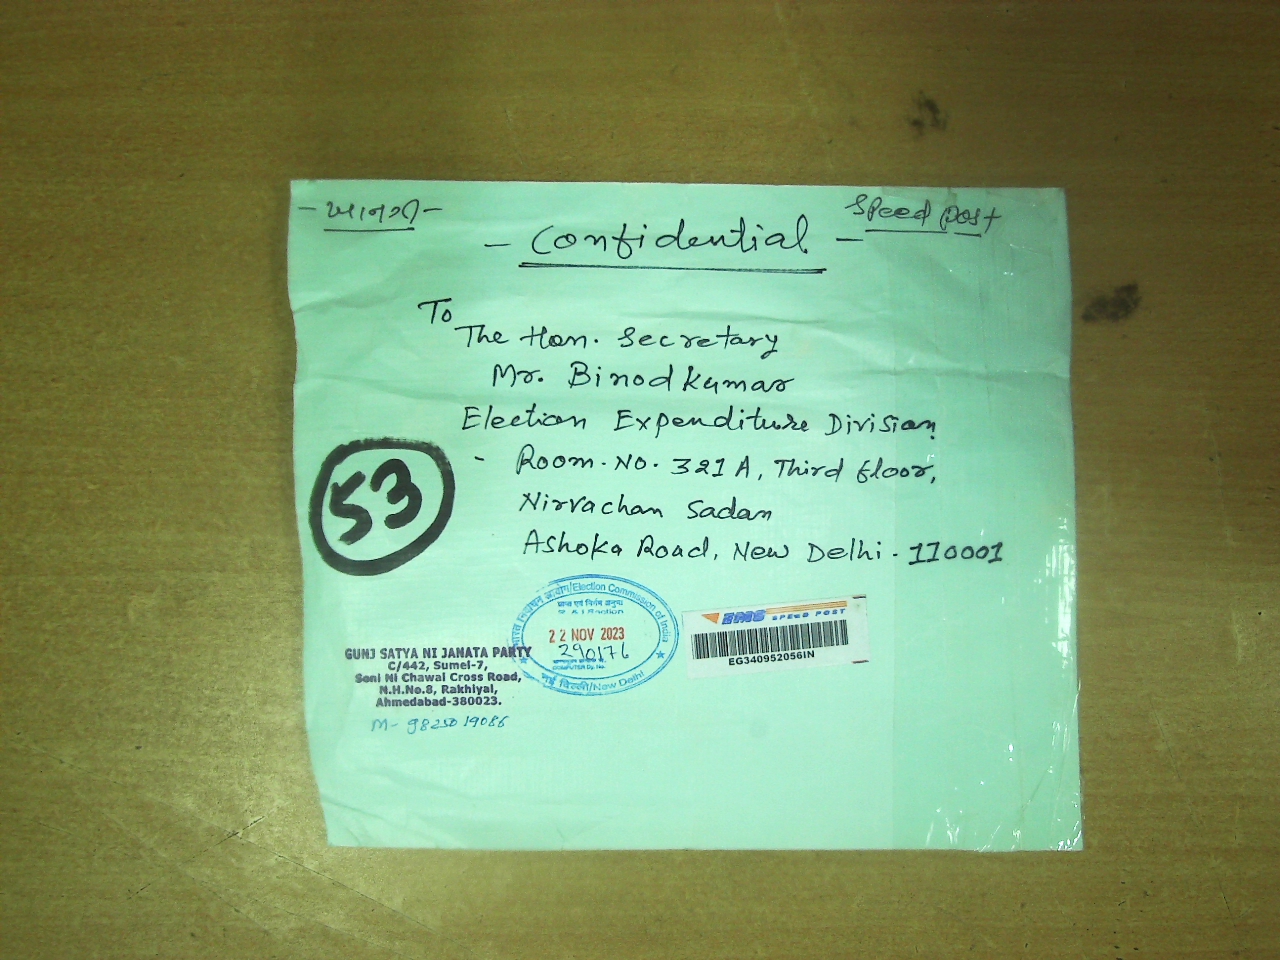 - ખાનગી -
Speed post
- Confidential -
To
The Hon. Secretary
Mr. Binod Kumar
Election Expenditure Division
- Room. No. 321 A, Third floor,
Nirvachan Sadan
Ashoka Road, New Delhi - 110001
53
भारत निर्वाचन आयोग/Election Commission of India
प्राप्त एवं निर्गम अनुभाग
R & I Section
22 NOV 2023
290176
नई दिल्ली/New Delhi
EMS SPEED POST
EG340952056IN
GUNJ SATYA NI JANATA PARTY
C/442, Sumel-7,
Soni Ni Chawal Cross Road,
N.H.No.8, Rakhiyal,
Ahmedabad-380023.
M- 9825019086